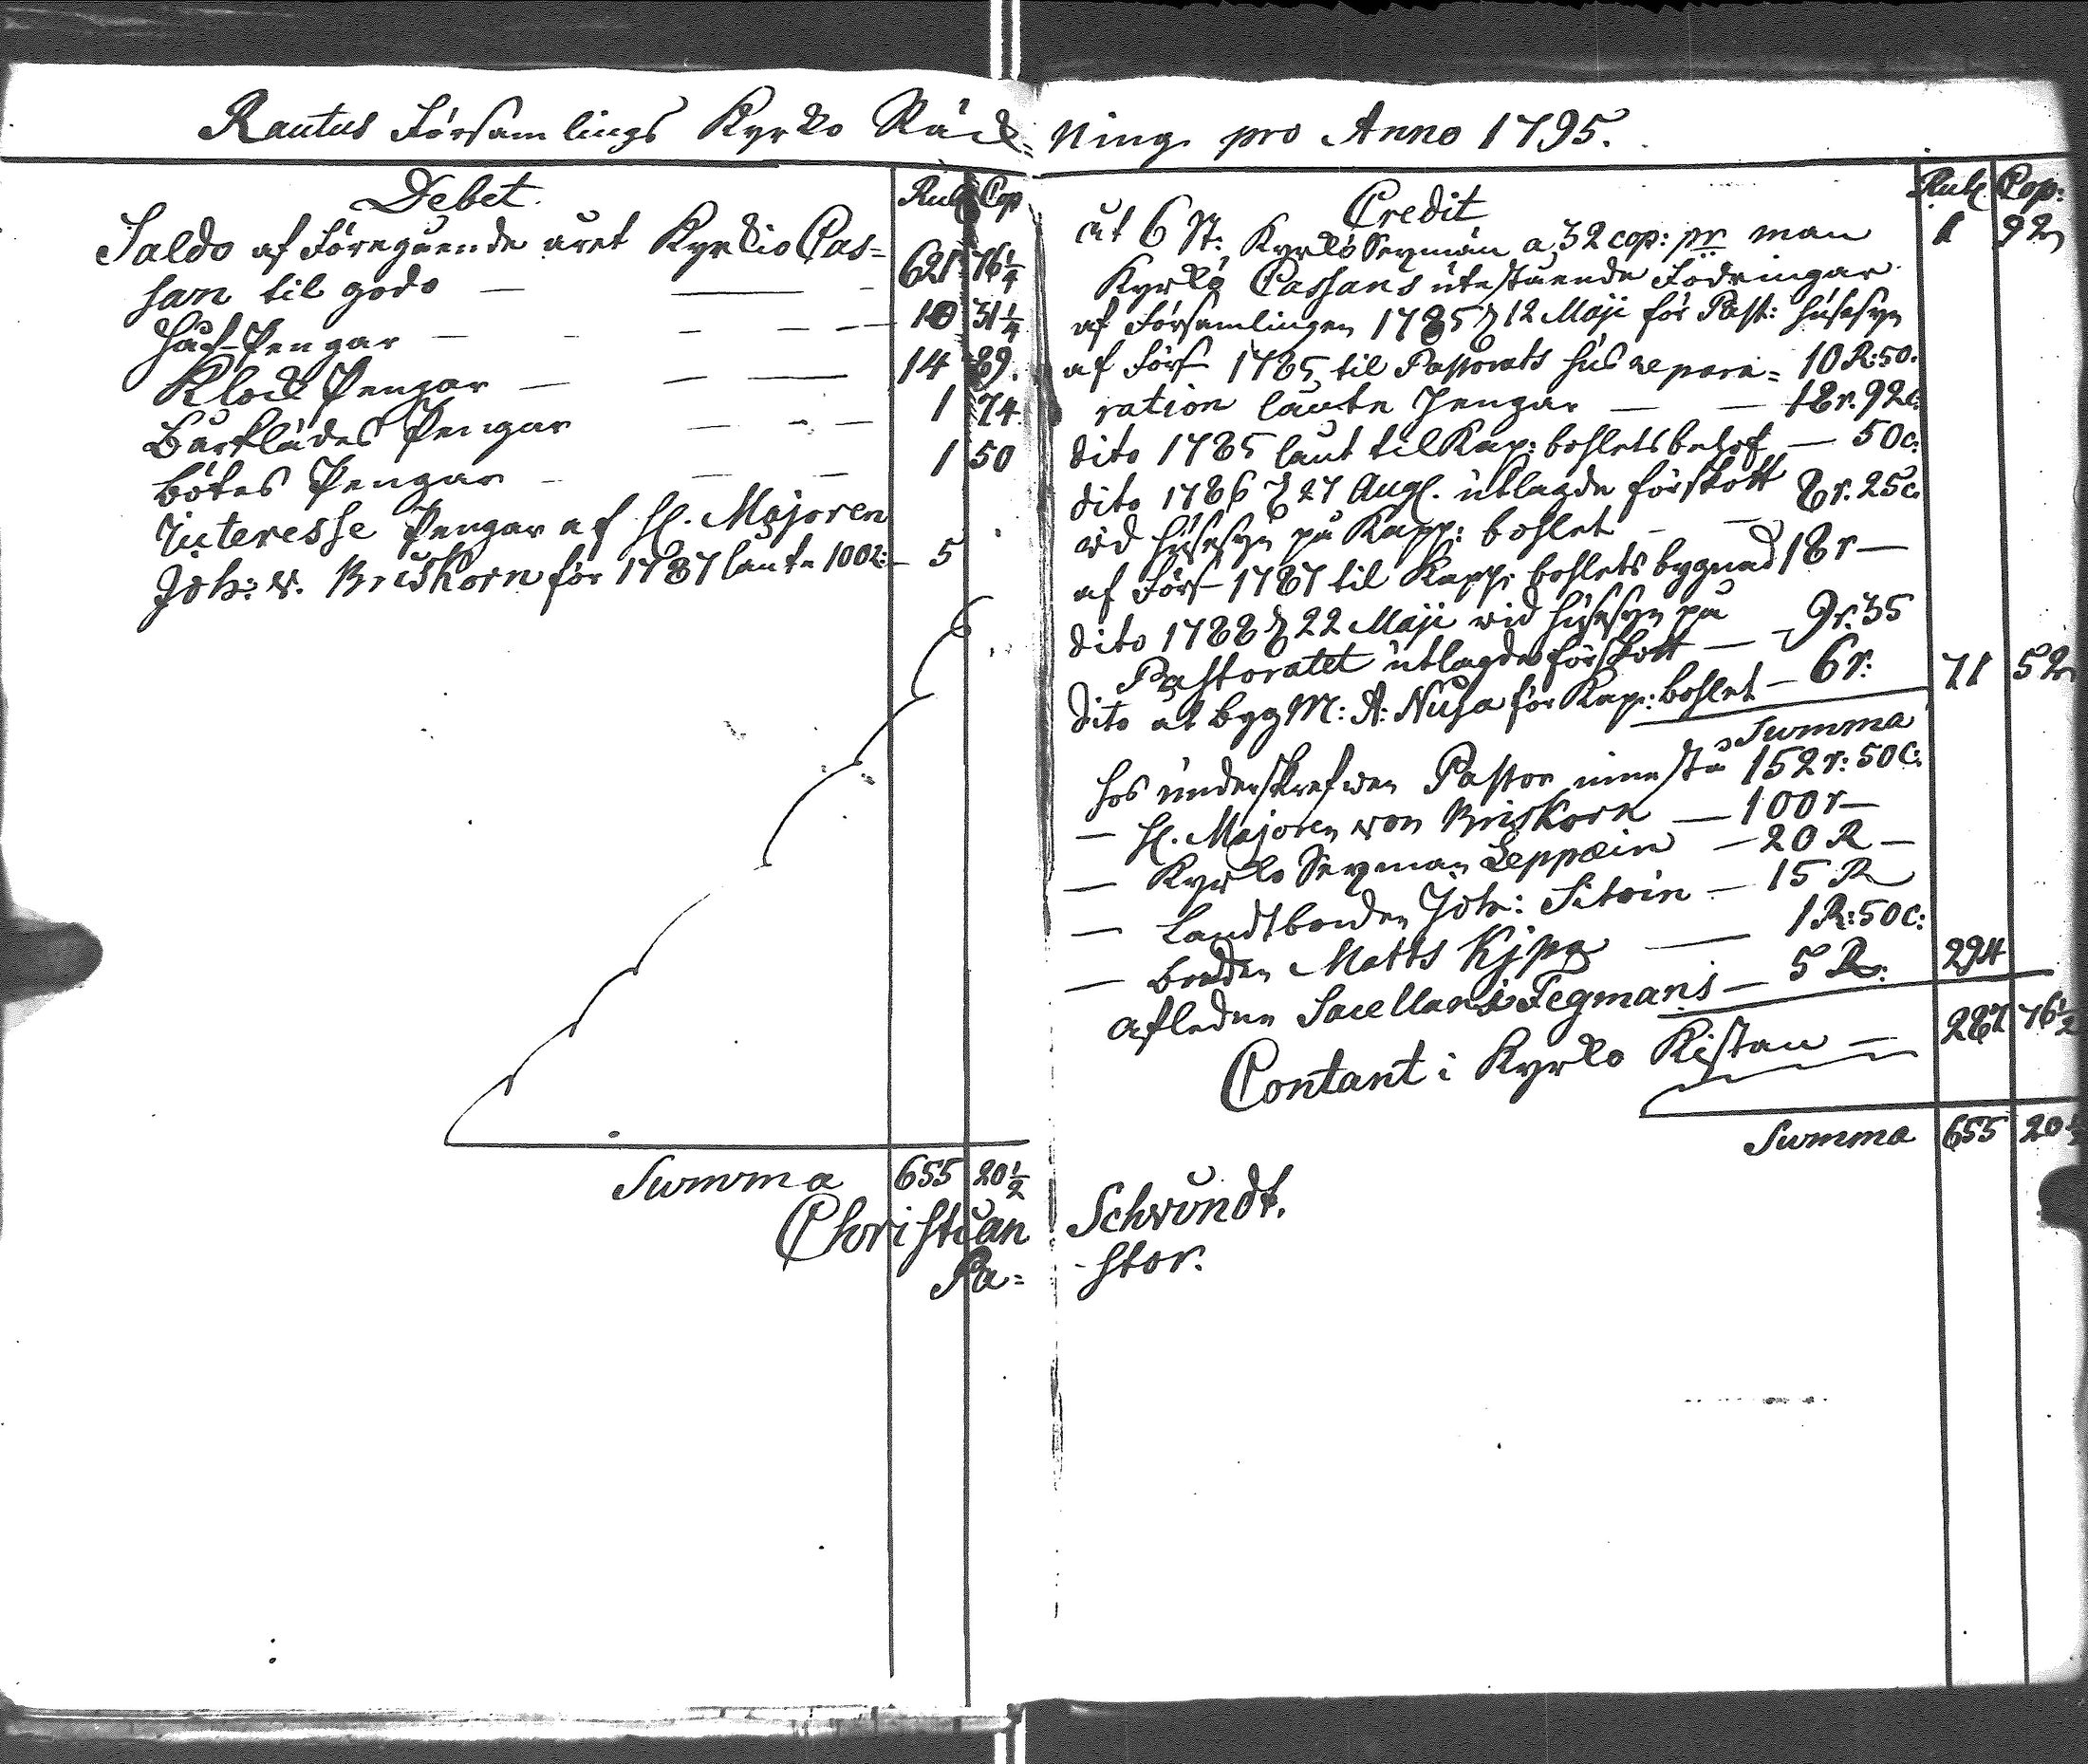 Rautus Församlings Kyrko Räck=
Debet. Rub Cop
Saldo af föregående året Kyrkio Cas=
san til godo — — 621 76 1/4
Håf-Pengar — — 10 31 1/4
Klock Pengar — — 14 89.
Bårklädes Pengar — — 1 74
Böтes Pengar — — 1 50
Interesse Pengar af H. Majoren
Joh: v. Briskorn för 1787 lånte 100 r: — 5
Summa 655 20 1/2
Christian
Pa=
ning pro Anno 1795.
Credit Rub Cop:
åt 6 St: Kyrko Sexmän a 32 cop: pr man 1 92
Kyrko Cassans utestående Fodringar
af Församlingen 1785 d 12 Maji för Past: husesyn
af Förs 1785 til Pastorats hus repara= 10 R: 50.
ration lånte Pengar — — 18 r. 92 c:
dito 1785 lånt til Kap: bohlets behof — 50 c:
dito 1786 d 27 Aug. utlagde förskott
vid husesyn på Kapp: bohlet — — 8 r. 25 c.
af Förs 1787 til Kapp: bohlets bygnad 18 r —
dito 1788 d 22 Maji vid husesyn på
Pastoratet utlagde förskott — 9 r. 35
dito åt bygM: A: Nusa för Kap: bohlet — 6 r: 71 52
Summa
hos underskrefwen Pastor innestå 152 r: 50 C:
— H. Majoren von Briskorn — 100 r —
— Kyrko Sexman Leppäin — 20 R —
— Landtbonden Joh: Sitoin — 15 R
— bonden Matts Kjpg — 1 R: 50 C:
afledne Sacellani Tegmans — 5 R: 294
Contant i Kyrko Kistan — 287 76 1/2
Summa 655 20 1/2
Schrundt.
-stor.